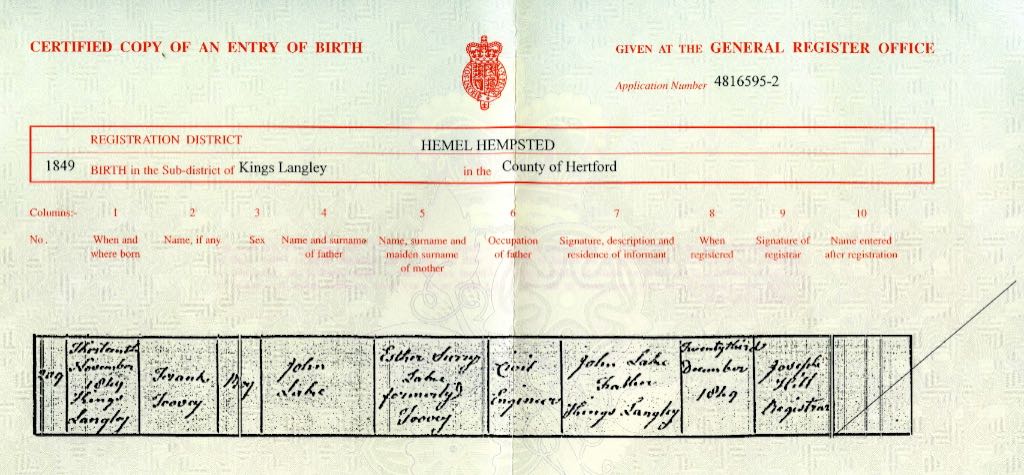 CERTIFIED COPY OF AN ENTRY OF BIRTH
GIVEN AT THE GENERAL REGISTER OFFICE
Application Number 4816595-2
REGISTRATION DISTRICT HEMEL HEMPSTED
1849 BIRTH in the Sub-district of Kings Langley in the County of Hertford
Columns:- 1 2 3 4 5 6 7 8 9 10
No. When and where born Name, if any Sex Name and surname of father Name, surname and maiden surname of mother Occupation of father Signature, description and residence of informant When registered Signature of registrar Name entered after registration
Thirteenth
November
1849
Kings
Langley
Frank
Toovey
Boy
John
Lake
Esther Surry
Lake
formerly
Toovey
Civil
Engineer
John Lake
Father
Kings Langley
Twentythird
December
1849
Joseph
Hill
Registrar